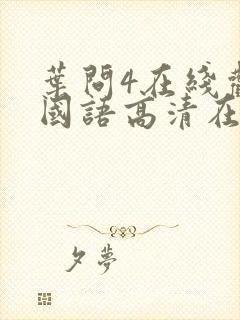 葉問4在綫
國語高清在
夕夢